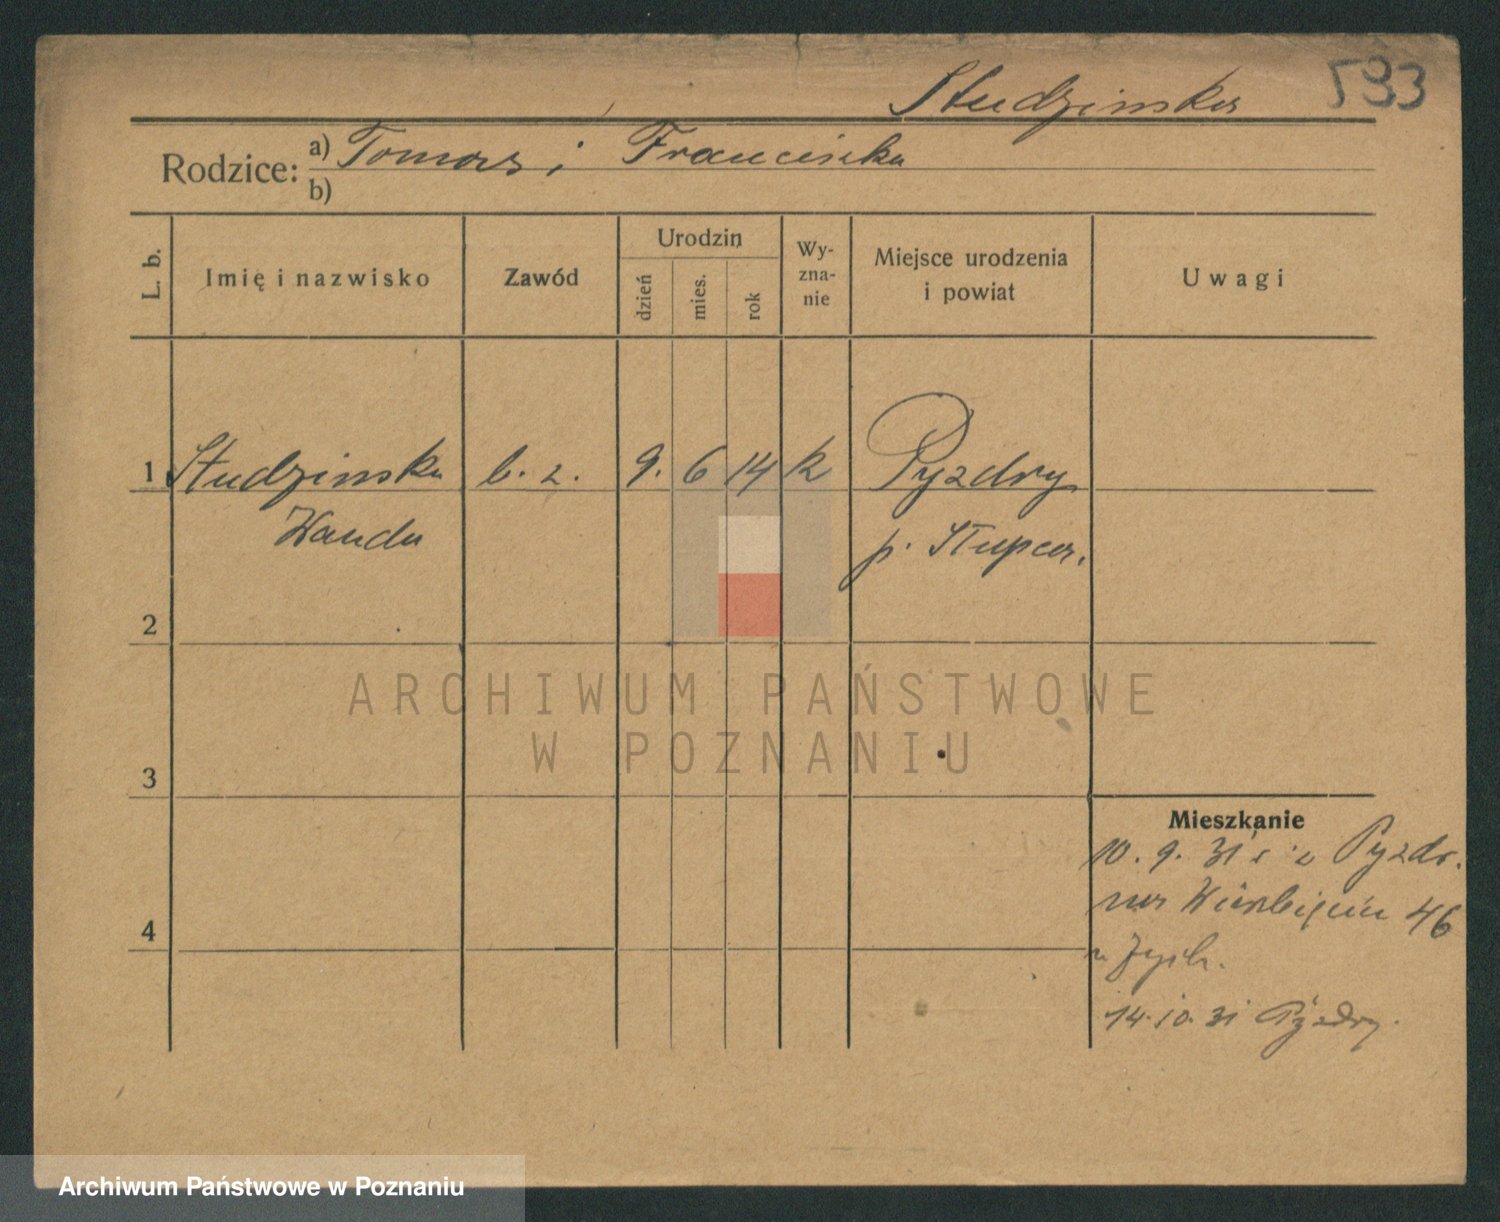 Studzinska 593
Rodzice: a) Tomasz i Franciszka
b)
L. b. Imię i nazwisko Zawód Urodzin dzień mies. rok Wy-zna-nie Miejsce urodzenia i powiat Uwagi
1 Studzinska b. z. 9. 6 14 k Pyzdry
Wanda p. Słupca.
2
ARCHIWUM PAŃSTWOWE
W POZNANIU
3
Mieszkanie
10. 9. 31 r. z Pyzdr.
na Wierzbięcice 46
4
14.10.31 Pyzdry.
Archiwum Państwowe w Poznaniu